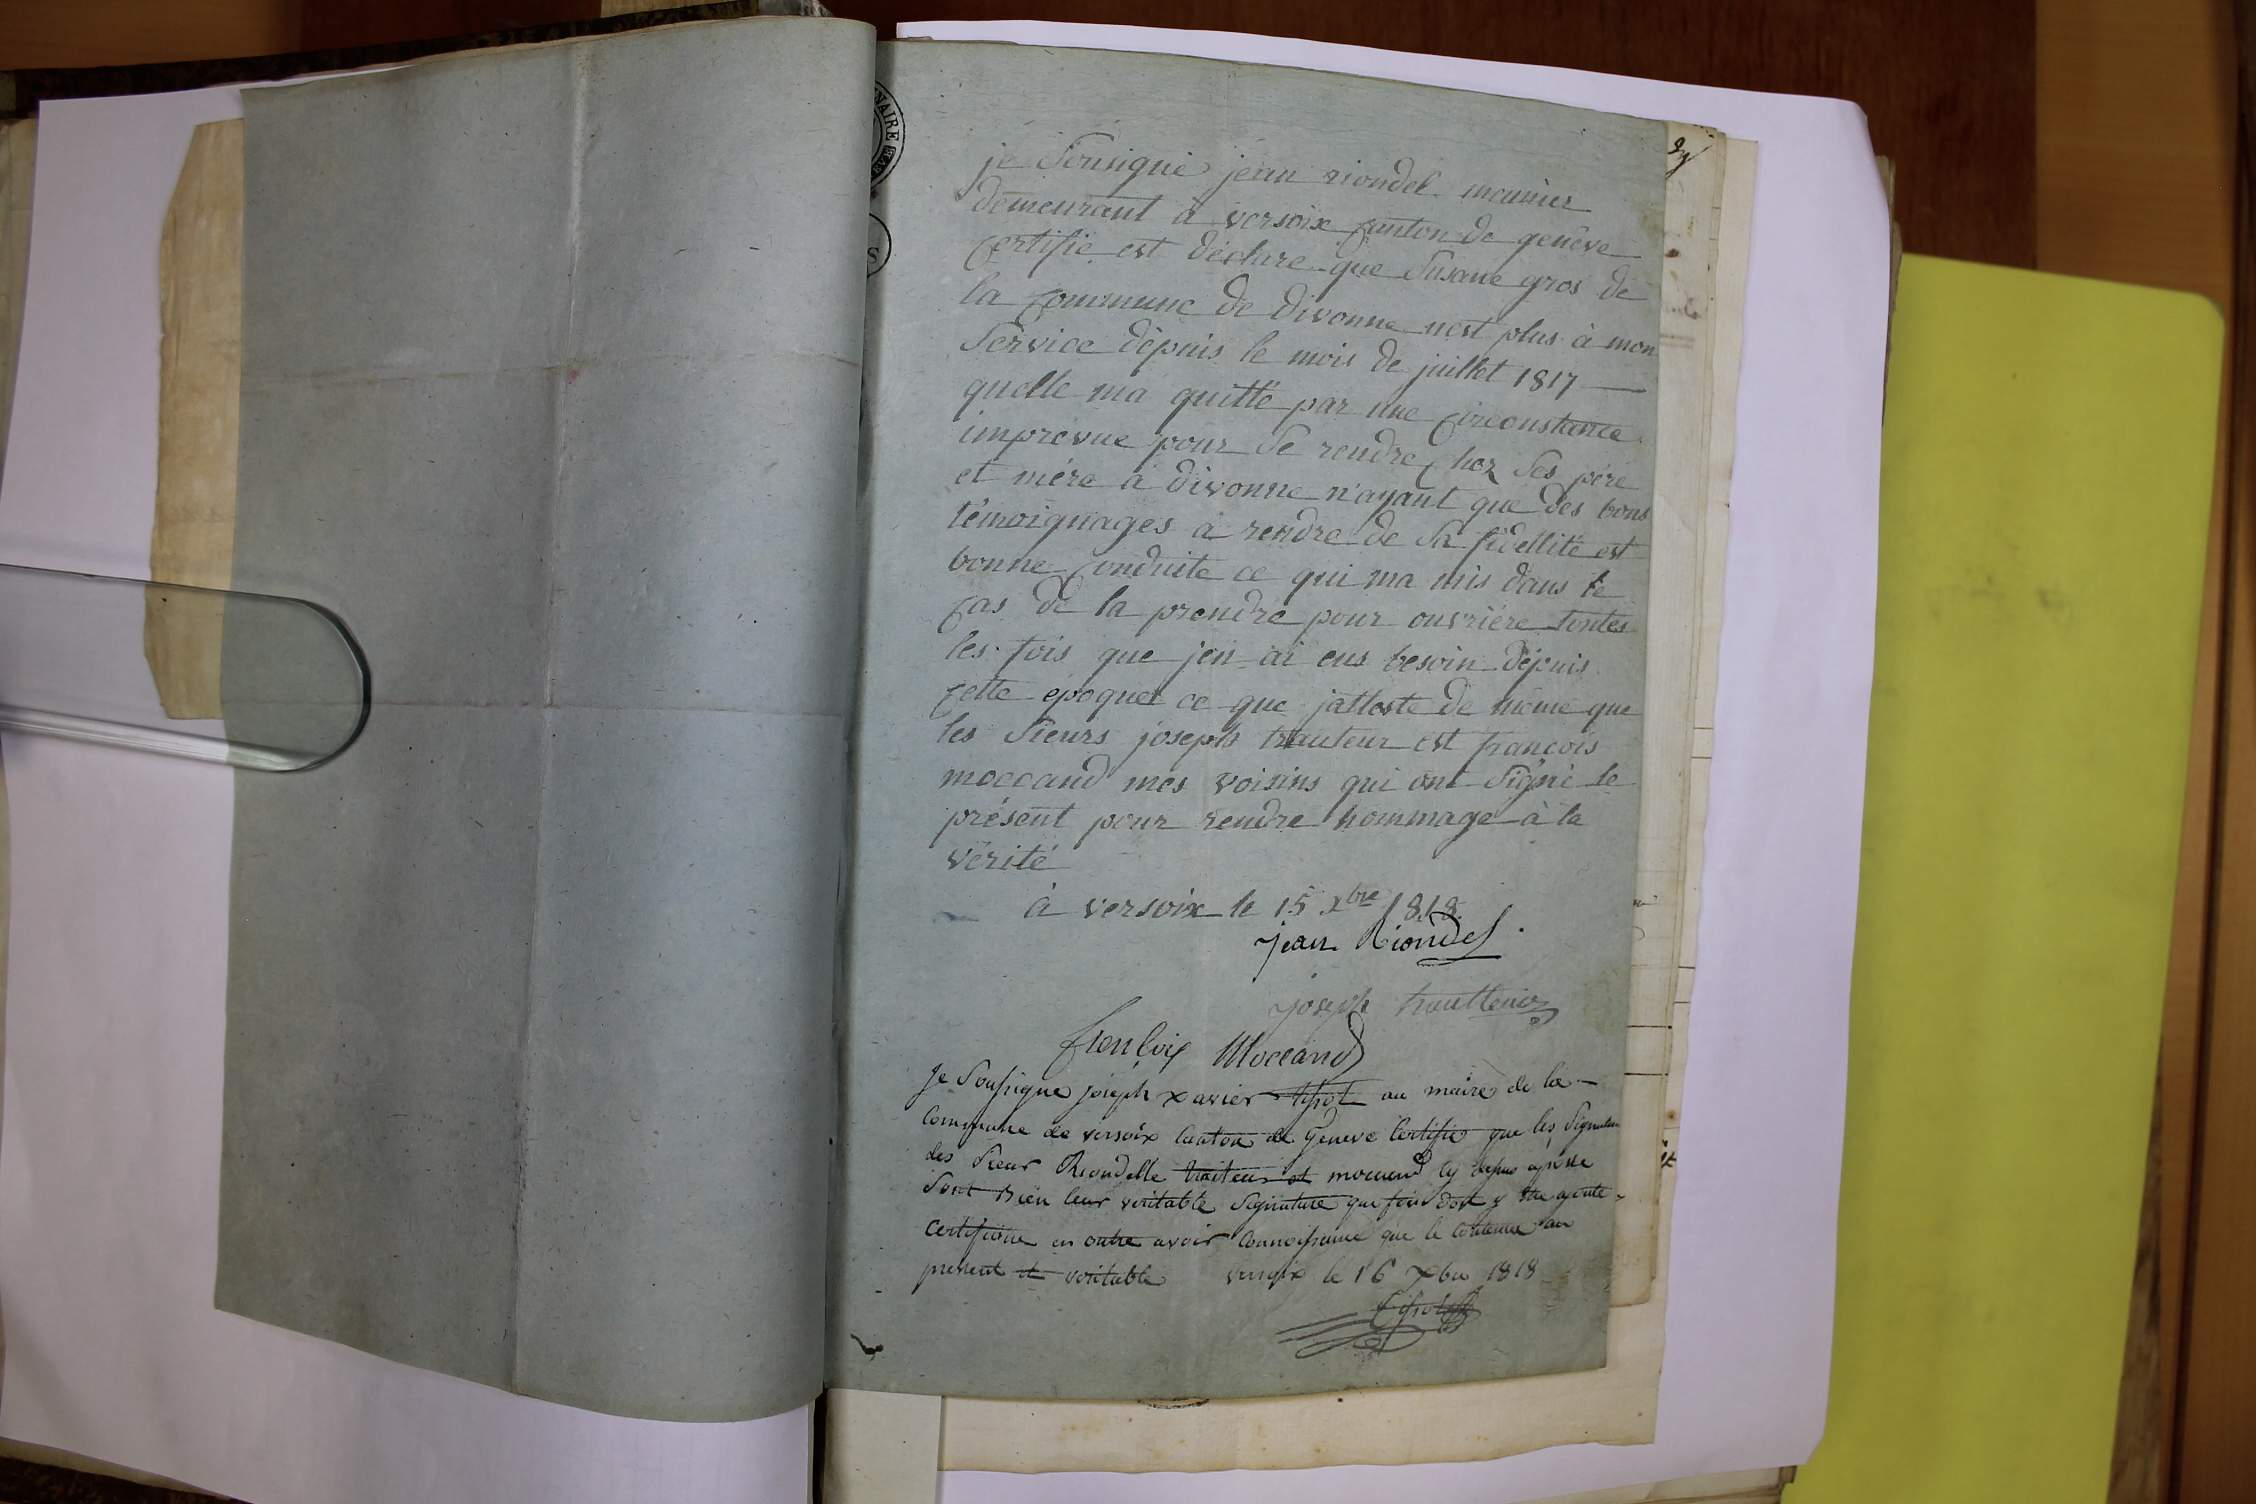 je Sousigné jéan riondel meunier
demeurant à versoix canton de genève
certifié est déclare que Susane gros de
la commune de divonne nest plus à mon
service dépuis le mois de juillet 1817 —
quelle ma quitté par une circonstance
imprévue pour se rendre chez ses pére
et mére à divonne n'ayant que des bons
témoignages à rendre de sa fidellité est
bonne conduite ce qui ma mis dans le
cas de la prendre pour ouvriére toutes
les fois que jen ai eus besoin dépuis
cette époque ce que jatteste de même que
les Sieurs joseph trauteur est françois
moccand mes voisins qui ont signé le
présent pour rendre hommage à la
vérité
à versoix le 15 xbre 1818
jean Riondel
joseph
françois Moccand
NAIRE
S
Je Soussigne joseph xavier au maire de la
Commune de versoix Canton de Geneve Certifie que les
des Sieur Riondelle et moccand
Sont Bien leur veritable Signature que foi doit y être ajoute
Certifions en outre avoir Connoissance que le Contenu au
present et veritable versoix le 16 Xbre 1818